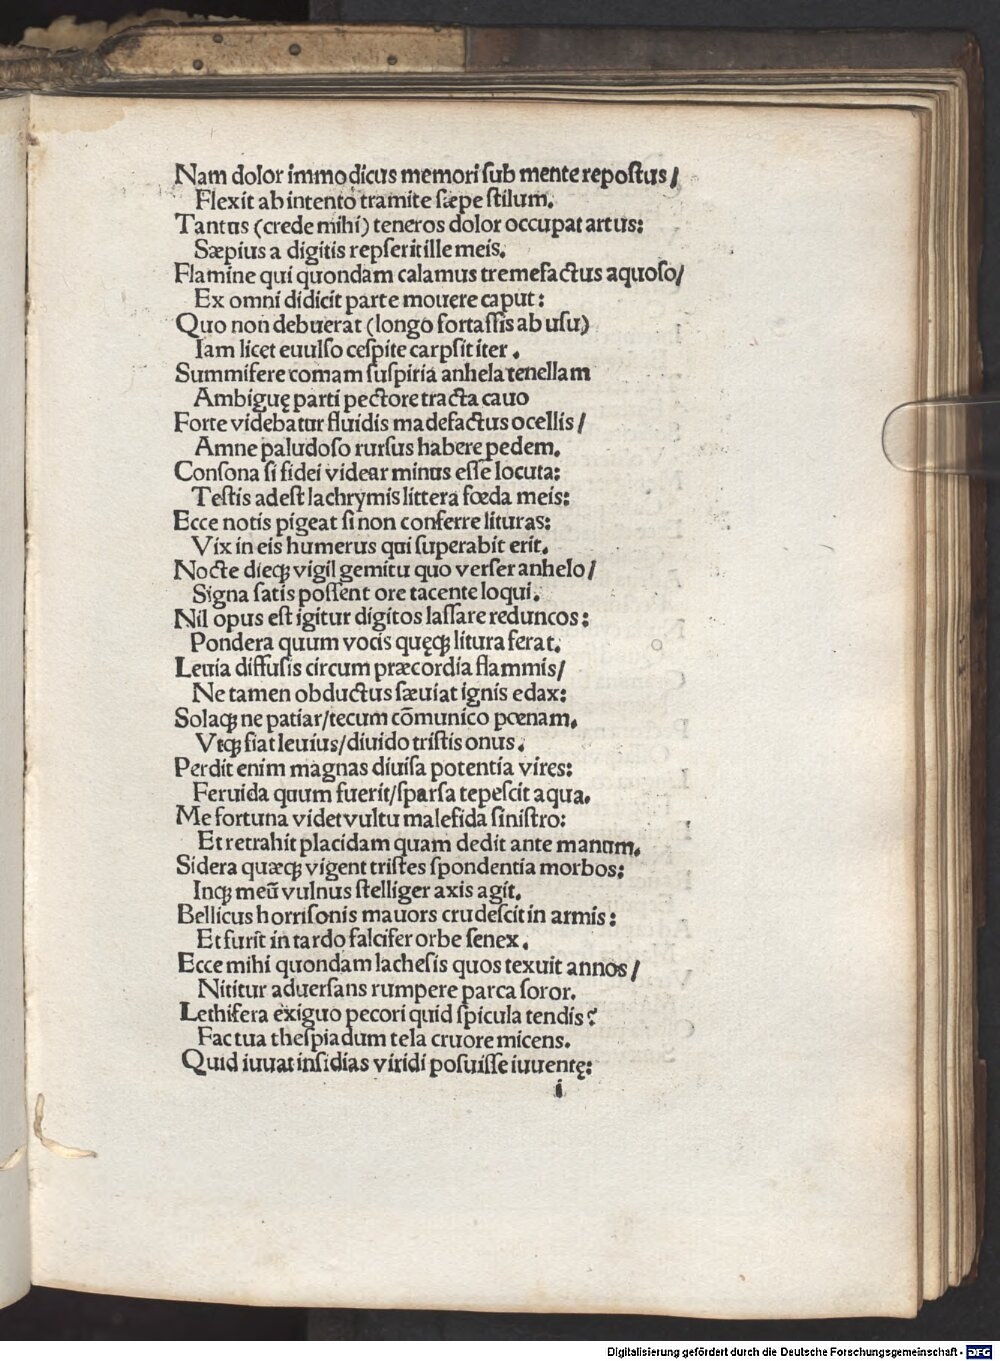 Nam dolor immodicus memori sub mente repostus/
Flexit ab intento tramite sæpe stilum.
Tantus (crede mihi) teneros dolor occupat artus:
Sæpius a digitis repserit ille meis.
Flamine qui quondam calamus tremefactus aquoso/
Ex omni didicit parte mouere caput:
Quo non debuerat (longo fortassis ab usu)
Iam licet euulso cespite carpsit iter.
Summifere comam suspiria anhela tenellam
Ambiguę parti pectore tracta cauo
Forte videbatur fluidis madefactus ocellis/
Amne paludoso rursus habere pedem.
Consona si fidei videar minus esse locuta:
Testis adest lachrymis littera fœda meis:
Ecce notis pigeat si non conferre lituras:
Vix in eis humerus qui superabit erit.
Nocte dieqꝫ vigil gemitu quo verser anhelo/
Signa satis possent ore tacente loqui.
Nil opus est igitur digitos lassare reduncos:
Pondera quum vocis quęqꝫ litura ferat.
Leuia diffusis circum præcordia flammis/
Ne tamen obductus sæuiat ignis edax:
Solaqꝫ ne patiar/tecum cōmunico pœnam.
Vtqꝫ fiat leuius/diuido tristis onus.
Perdit enim magnas diuisa potentia vires:
Feruida quum fuerit/sparsa tepescit aqua.
Me fortuna videt vultu malefida sinistro:
Et retrahit placidam quam dedit ante manum.
Sidera quæqꝫ vigent tristes spondentia morbos:
Inqꝫ meū vulnus stelliger axis agit.
Bellicus horrisonis mauors crudescit in armis:
Et furit in tardo falcifer orbe senex.
Ecce mihi quondam lachesis quos texuit annos/
Nititur aduersans rumpere parca soror.
Lethifera exiguo pecori quid spicula tendis?
Fac tua thespiadum tela cruore micens.
Quid iuuat insidias viridi posuisse iuuentę:
i
Digitalisierung gefördert durch die Deutsche Forschungsgemeinschaft - DFG